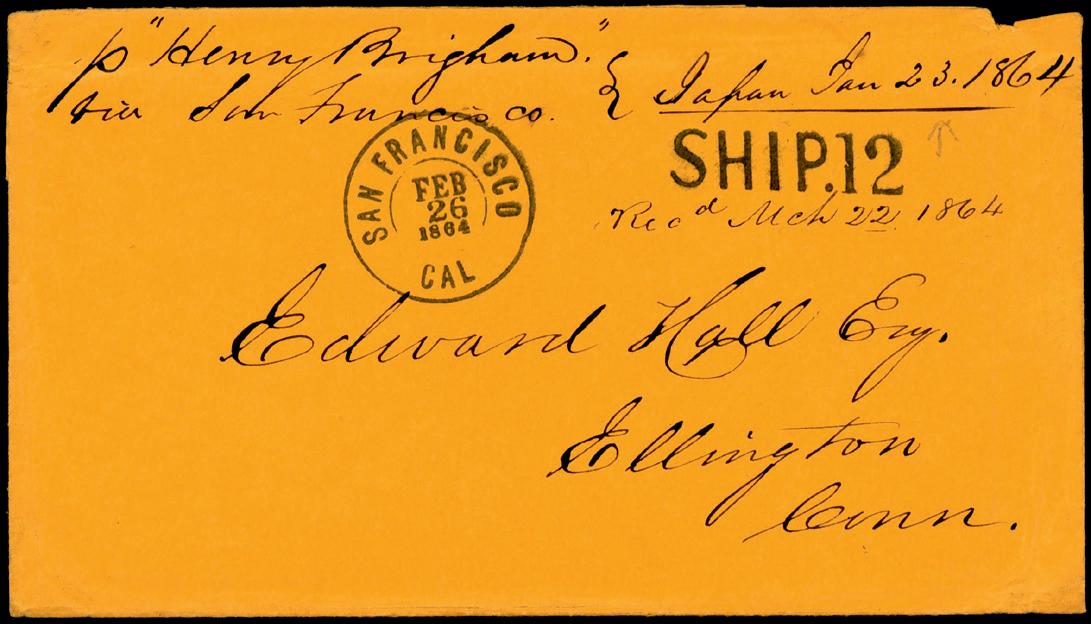 p "Henry Brigham."
via San Francisco. { Japan Jan 23. 1864
SHIP.12
Recd Mch 22 1864
SAN FRANCISCO
FEB
26
1864
CAL
Edward Hall Esq.
Ellington
Conn.